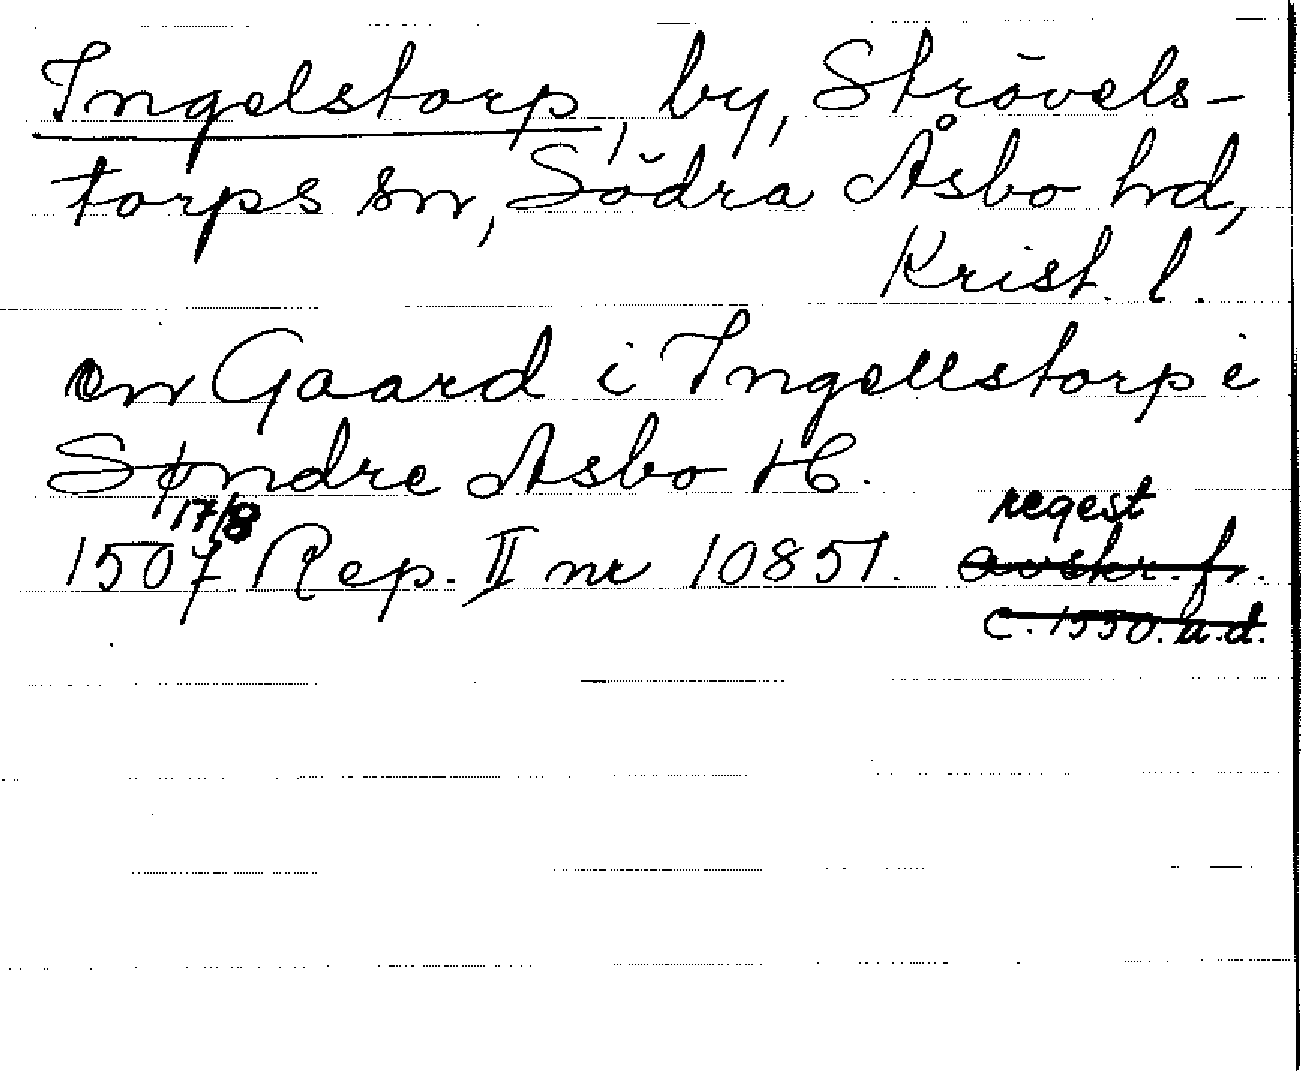 Ingelstorp, by, Strövels-
torps sn, Södra Åsbo hd,
Krist. l.
en Gaard i Ingellstorp i
Søndre Asbo H.
17/8 regest
1507 Rep. II nr 10851. avskr. fr.
c. 1550. a.d.